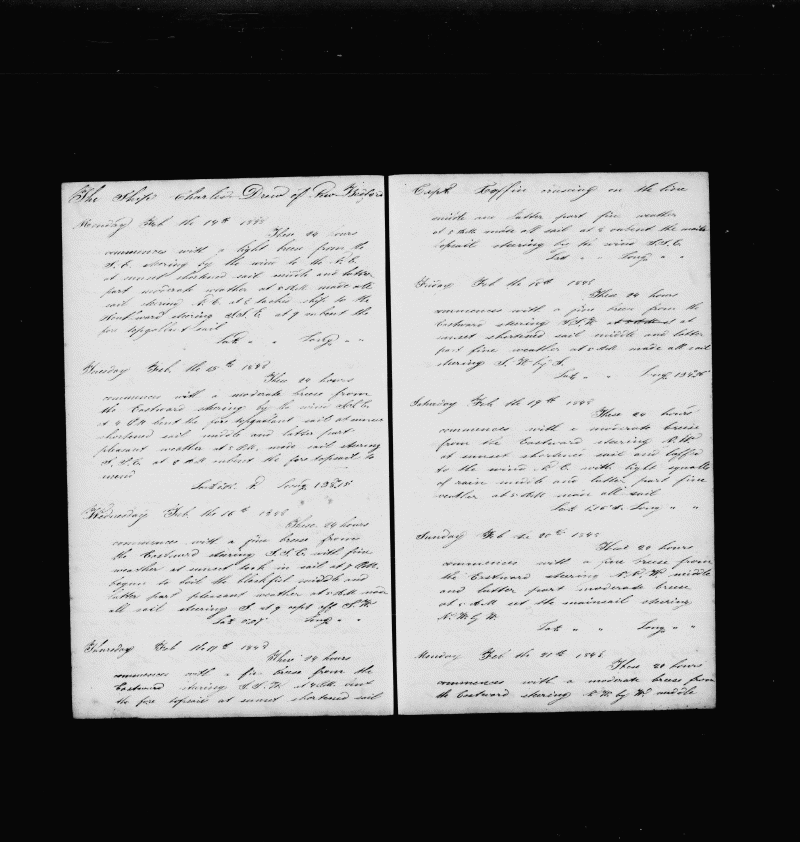 The Ship Charles Drew of New Bedford
Monday Feb the 14th 1848
These 24 hours
commences with a light breeze from the
S.E. steering by the wind to the N.E.
at sunset shortend sail middle and latter
part moderate weather at AM made all
sail steering N.E. at tacked ship to the
ward steering S.S.E. at 9 unbent the
fore topgallent sail
Lat " " Long " "
Tuesday Feb. the 15th 1848
These 24 hours
commences with a moderate breeze from
the Eastward steering by the wind
at PM bent the fore topgallant sail at sunset
shortened sail middle and latter part
pleasant weather at AM made sail steering
S.S.E. at AM unbent the fore topsail to
mend
Long
Wednesday Feb. the 16th 1848
These 24 hours
commences with a fine breeze from
the Eastward steering S.S.E. with fine
weather at sunset took in sail at PM
began to boil the blackfish middle and
latter part pleasant weather at AM made
all sail steering S at 9 kept off S.W.
Lat Long " "
Thursday Feb the 17th 1848
These 24 hours
commences with a fine breeze from the
Eastward steering S.S.W. at AM bent
the fore topsail at sunset shortened sail
Capt Coffin cruising on the line
middle and latter part fine weather
at AM made all sail at unbent the main
topsail steering by the wind S.S.E.
Lat " " Long " "
Friday Feb the 18th 1848
These 24 hours
commences with a fine breeze from the
Eastward steering S.S.W. at
sunset shortened sail middle and latter
part fine weather at AM made all sail
steering S.W. by S.
Lat " " Long
Saturday Feb. the 19th 1848
These 24 hours
commences with a moderate breeze
from the Eastward steering S.W.
at sunset shortened sail and luff'd
to the wind N.E. with light squalls
of rain middle and latter part fine
weather at AM made all sail
Lat Long " "
Sunday Feb the 20th 1848
These 24 hours
commences with a fine breeze from
the Eastward steering middle
and latter part moderate breeze
at AM set the mainsail steering
N.W. by W.
Lat " " Long " "
Monday Feb the 21st 1848
These 24 hours
commences with a moderate breeze from
the Eastward steering N.W. by W. middle